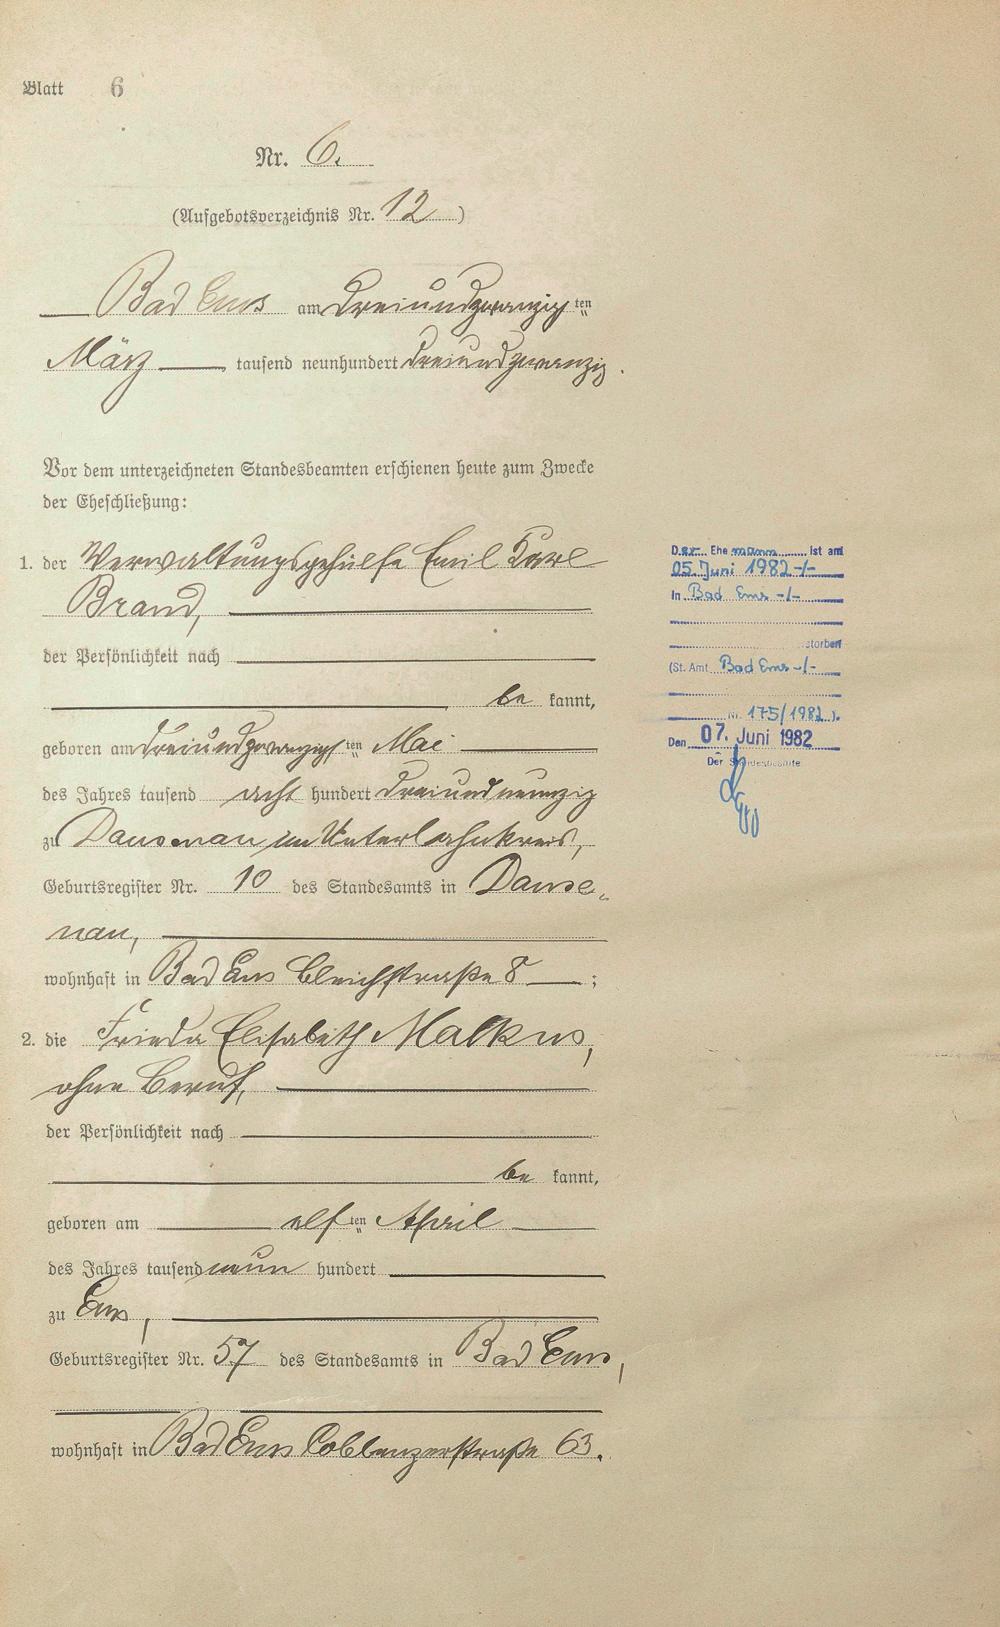 Blatt 6
Nr. 6.
(Aufgebotsverzeichnis Nr. 12)
Bad Ems am dreiundzwanzig ten
März tausend neunhundert dreiundzwanzig.
Vor dem unterzeichneten Standesbeamten erschienen heute zum Zwecke
der Eheschließung:
1. der Verwaltungsgehülfe Emil Karl
Brand,
der Persönlichkeit nach
be kannt,
geboren am dreiundzwanzigsten Mai
des Jahres tausend acht hundert dreiundneunzig
zu Dausenau im Unterlahnkreis,
Geburtsregister Nr. 10 des Standesamts in Dause-
nau,
wohnhaft in Bad Ems Bleichstraße 8 ;
2. die Frieda Elisabeth Malkus,
ohne Beruf,
der Persönlichkeit nach
be kannt,
geboren am elf ten April
des Jahres tausend neun hundert
zu Ems,
Geburtsregister Nr. 57 des Standesamts in Bad Ems,
wohnhaft in Bad Ems Coblenzerstraße 63.
Der Ehemann ist am
05. Juni 1982 -/-
In Bad Ems -/-
storben
(St. Amt Bad Ems -/-
Nr. 175/1982 ).
Den 07. Juni 1982
Der Standesbeamte